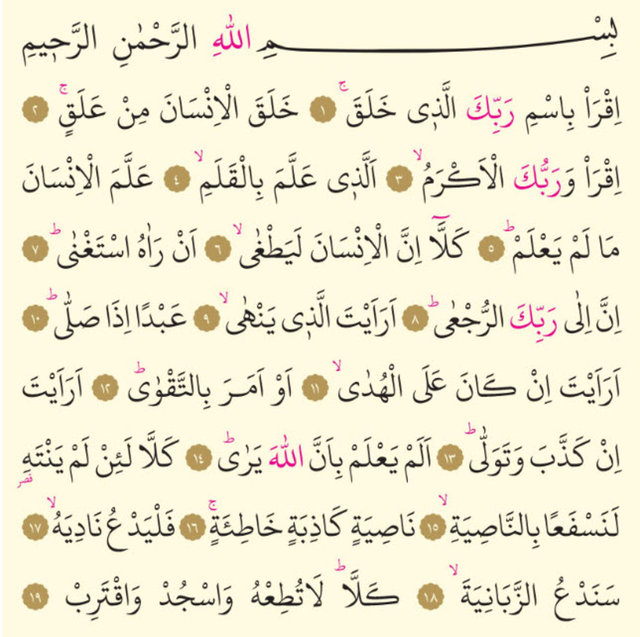 بِسْمِ اللّٰهِ الرَّحْمٰنِ الرَّحٖيمِ
اِقْرَاْ بِاسْمِ رَبِّكَ الَّذٖى خَلَقَۚ ﴿١﴾ خَلَقَ الْاِنْسَانَ مِنْ عَلَقٍۚ ﴿٢﴾
اِقْرَاْ وَرَبُّكَ الْاَكْرَمُۙ ﴿٣﴾ اَلَّذٖى عَلَّمَ بِالْقَلَمِۙ ﴿٤﴾ عَلَّمَ الْاِنْسَانَ
مَا لَمْ يَعْلَمْؕ ﴿٥﴾ كَلَّٓا اِنَّ الْاِنْسَانَ لَيَطْغٰىۙ ﴿٦﴾ اَنْ رَاٰهُ اسْتَغْنٰىؕ ﴿٧﴾
اِنَّ اِلٰى رَبِّكَ الرُّجْعٰىؕ ﴿٨﴾ اَرَاَيْتَ الَّذٖى يَنْهٰىۙ ﴿٩﴾ عَبْدًا اِذَا صَلّٰىؕ ﴿١٠﴾
اَرَاَيْتَ اِنْ كَانَ عَلَى الْهُدٰىۙ ﴿١١﴾ اَوْ اَمَرَ بِالتَّقْوٰىؕ ﴿١٢﴾ اَرَاَيْتَ
اِنْ كَذَّبَ وَتَوَلّٰىؕ ﴿١٣﴾ اَلَمْ يَعْلَمْ بِاَنَّ اللّٰهَ يَرٰىؕ ﴿١٤﴾ كَلَّا لَئِنْ لَمْ يَنْتَهِ قصر
لَنَسْفَعًا بِالنَّاصِيَةِۙ ﴿١٥﴾ نَاصِيَةٍ كَاذِبَةٍ خَاطِئَةٍۚ ﴿١٦﴾ فَلْيَدْعُ نَادِيَهُۙ ﴿١٧﴾
سَنَدْعُ الزَّبَانِيَةَۙ ﴿١٨﴾ كَلَّاؕ لَا تُطِعْهُ وَاسْجُدْ وَاقْتَرِبْ ﴿١٩﴾